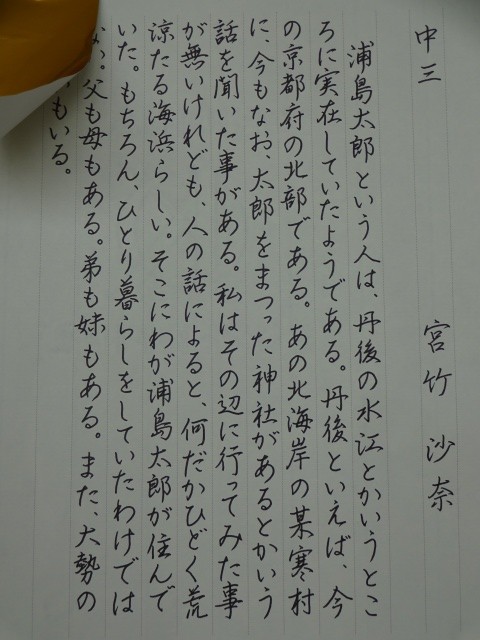 中三 宮竹 沙奈
浦島太郎という人は、丹後の水江とかいうとこ
ろに実在していたようである。丹後といえば、今
の京都府の北部である。あの北海岸の某寒村
に、今もなお、太郎をまつった神社があるとかいう
話を聞いた事がある。私はその辺に行ってみた事
が無いけれども、人の話によると、何だかひどく荒
涼たる海浜らしい。そこにわが浦島太郎が住んで
いた。もちろん、ひとり暮らしをしていたわけでは
ない。父も母もある。弟も妹もある。また、大勢の
もいる。